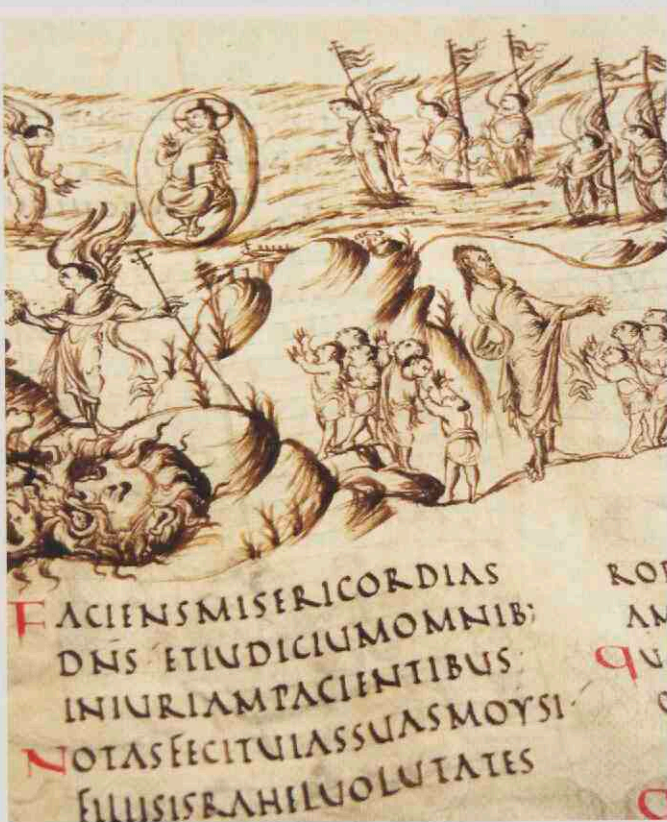 FACIENSMISERICORDIAS
DNS·ETIUDICIUMOMNIB;
INIURIAMPACIENTIBUS·
NOTASFECITUIASSUASMOYSI·
FILIISISRAHELUOLUTATES
QU